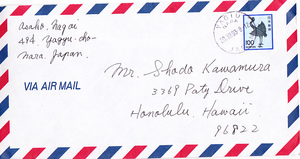 Asako, Nagai
494 Yagyu-cho-
Nara, Japan.
VIA AIR MAIL
Mr. Shodo Kawamura
3369 Paty Drive
Honolulu, Hawaii.
96822
100